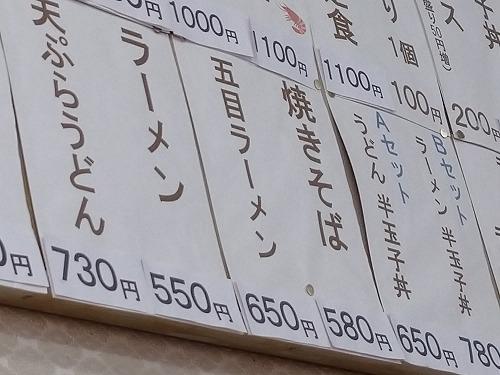 1000円
1100円
定食
1100円
り 1個
100円
子丼
ス
200
天ぷらうどん
730円
ラーメン
550円
五目ラーメン
650円
焼きそば
580円
Aセット
うどん 半玉子丼
650円
Bセット
ラーメン 半玉子丼
780